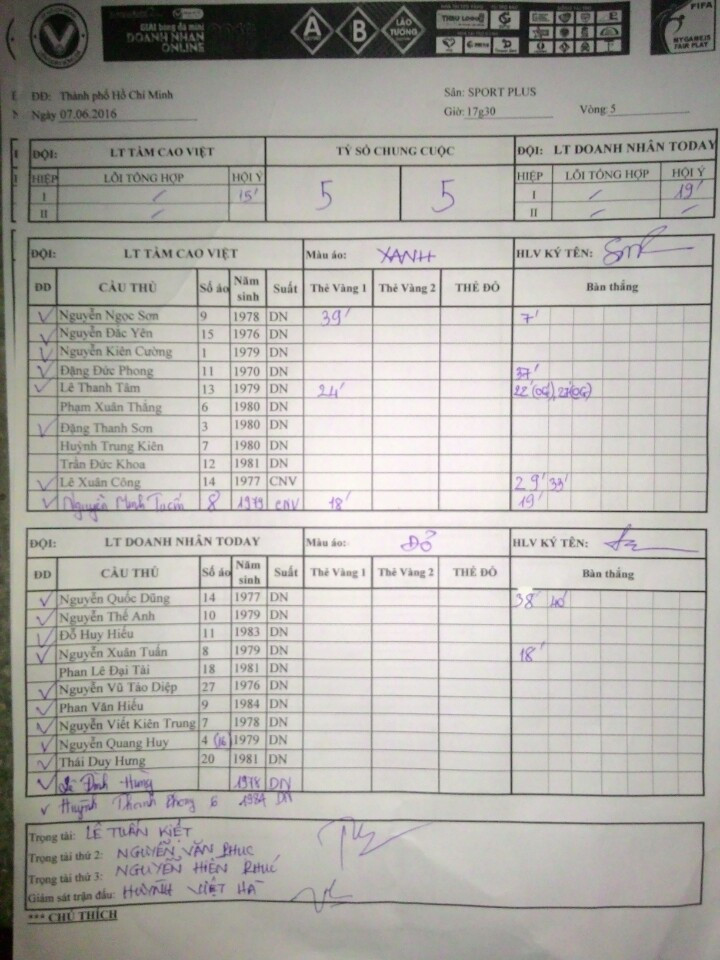 GIẢI bóng đá mini
DOANH NHÂN
ONLINE
A B LÃO TƯỚNG
FIFA
MY GAME IS
FAIR PLAY
ĐĐ: Thành phố Hồ Chí Minh Sân: SPORT PLUS
Ngày 07.06.2016 Giờ: 17g30 Vòng: 5
ĐỘI: LT TÂM CAO VIỆT TỶ SỐ CHUNG CUỘC ĐỘI: LT DOANH NHÂN TODAY
HIỆP LỖI TỔNG HỢP HỘI Ý 5 5 HIỆP LỖI TỔNG HỢP HỘI Ý
I / 15' I / 19'
II / II / /
ĐỘI: LT TÂM CAO VIỆT Màu áo: XANH HLV KÝ TÊN:
ĐD CẦU THỦ Số áo Năm sinh Suất Thẻ Vàng 1 Thẻ Vàng 2 THẺ ĐỎ Bàn thắng
Nguyễn Ngọc Sơn 9 1978 DN 39' 7'
Nguyễn Đắc Yên 15 1976 DN
Nguyễn Kiên Cường 1 1979 DN
Đặng Đức Phong 11 1970 DN 37'
Lê Thanh Tâm 13 1979 DN 24' 22' (OG), 27' (OG)
Phạm Xuân Thắng 6 1980 DN
Đặng Thanh Sơn 3 1980 DN
Huỳnh Trung Kiên 7 1980 DN
Trần Đức Khoa 12 1981 DN
Lê Xuân Công 14 1977 CNV 29' 33'
Nguyễn Minh 8 1979 CNV 18' 19'
ĐỘI: LT DOANH NHÂN TODAY Màu áo: ĐỎ HLV KÝ TÊN:
ĐD CẦU THỦ Số áo Năm sinh Suất Thẻ Vàng 1 Thẻ Vàng 2 THẺ ĐỎ Bàn thắng
Nguyễn Quốc Dũng 14 1977 DN 38' 40'
Nguyễn Thế Anh 10 1979 DN
Đỗ Huy Hiếu 11 1983 DN
Nguyễn Xuân Tuấn 8 1979 DN 18'
Phan Lê Đại Tài 18 1981 DN
Nguyễn Vũ Táo Diệp 27 1976 DN
Phan Văn Hiếu 9 1984 DN
Nguyễn Viết Kiên Trung 7 1978 DN
Nguyễn Quang Huy 4 (16) 1979 DN
Thái Duy Hưng 20 1981 DN
Lê Đình Hùng 1978 DN
Huỳnh Thanh Phong 6 1984 DN
Trọng tài: LÊ TUẤN KIẾT
Trọng tài thứ 2: NGUYỄN VĂN PHÚC
Trọng tài thứ 3: NGUYỄN HIỀN PHÚC
Giám sát trận đấu: HUỲNH VIỆT HÀ
*** CHÚ THÍCH